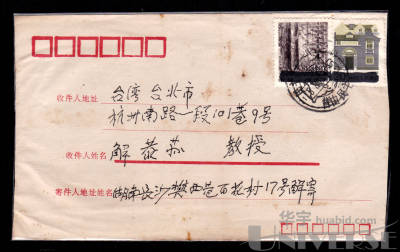 收件人地址 台湾 台北市
杭州南路一段101巷9号
收件人姓名 解 教授
寄件人地址姓名 湖南长沙樊西巷百花村17号解寄
华宇 huabid.com
UNIVERSE